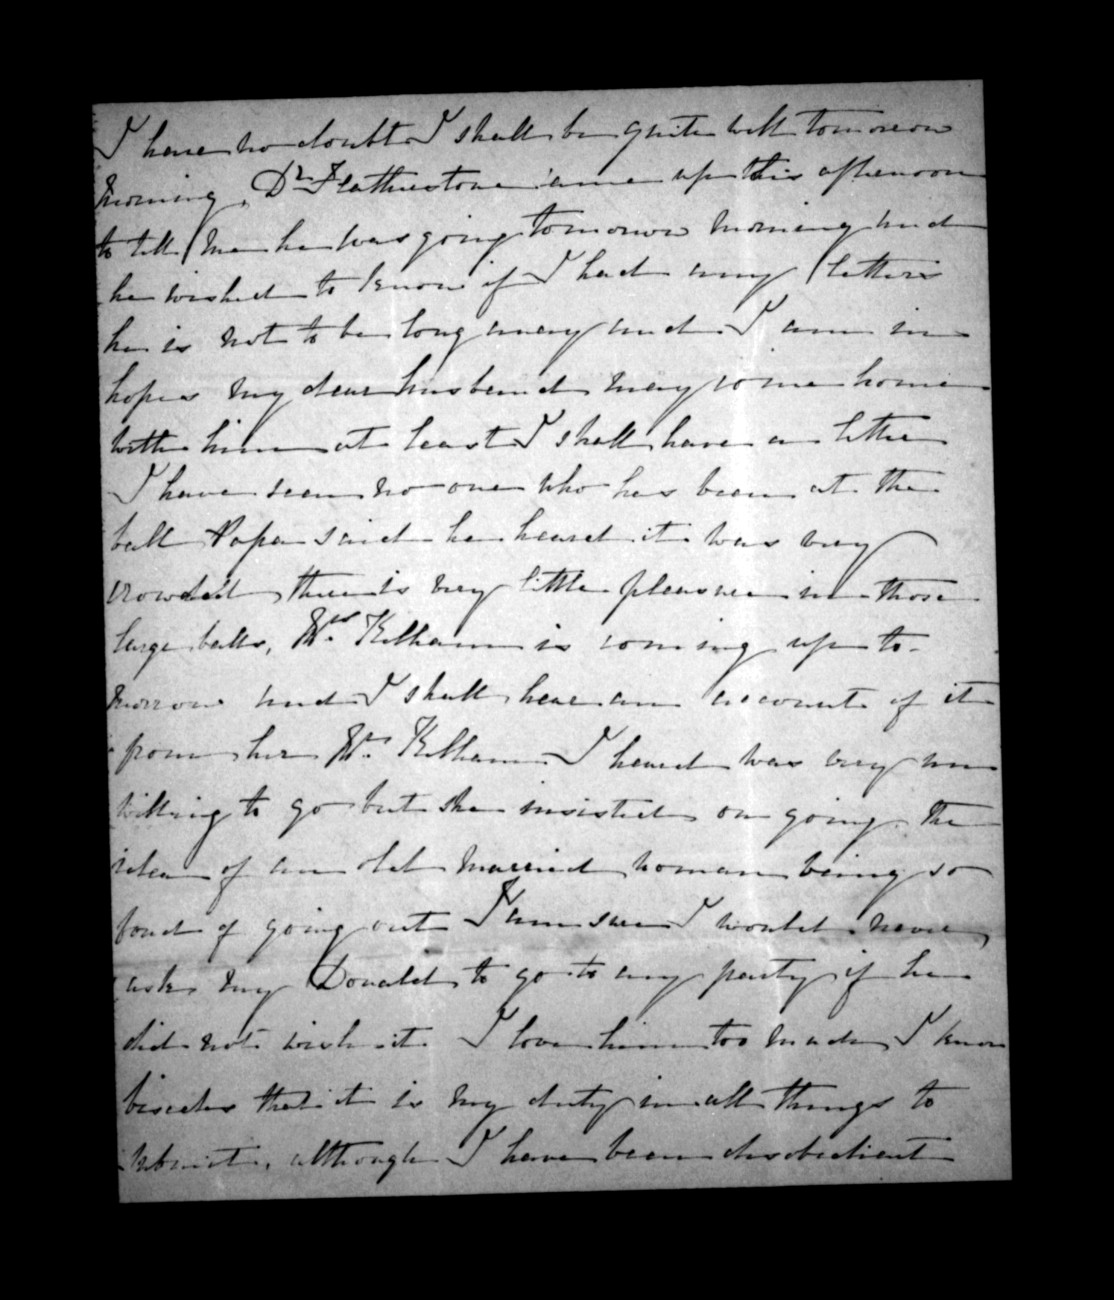 I have no doubt I shall be quite well tomorrow
morning, Dr Featherstone came up this afternoon
to tell me he was going tomorrow morning and
he wished to know if I had any letters
he is not to be long away and I am in
hopes my dear husband may come home
with him at least I shall have a letter
I have seen no one who has been at the
ball Papa said he heard it was very
crowded, there is very little pleasure in those
large balls, Mrs Kelham is coming up to-
morrow and I shall hear an account of it
from her Mr. Kelham I heard was very un
willing to go but she insisted on going. the
idea of an old married woman being so
fond of going out I am sure I would never
ask my Donald to go to any party if he
did not wish it I love him too much, I know
besides that it is my duty in all things to
submit, although I have been disobedient